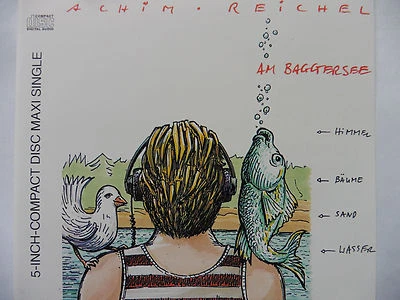 COMPACT
disc
DIGITAL AUDIO
ACHIM · REICHEL
AM BAGGERSEE
5-INCH-COMPACT DISC MAXI SINGLE
← HiMMEL
← BÄUME
← SAND
← WASSER